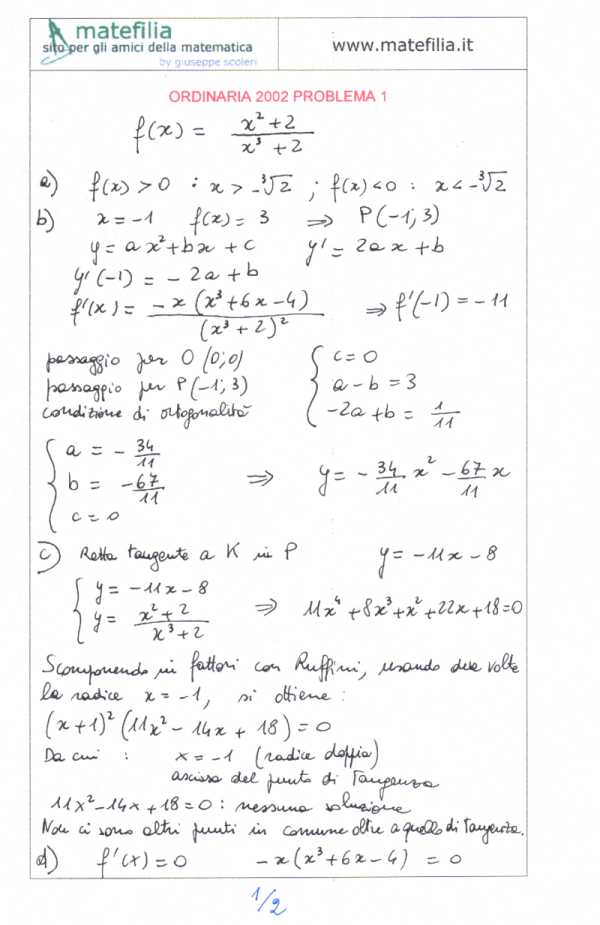 matefilia
sito per gli amici della matematica
by giuseppe scoleri
www.matefilia.it
ORDINARIA 2002 PROBLEMA 1
f(x) = (x²+2)/(x³+2)
a) f(x) > 0 : x > -³√2 ; f(x) < 0 : x < -³√2
b) x = -1 f(x) = 3 ⇒ P(-1; 3)
y = ax² + bx + c y' = 2ax + b
y'(-1) = -2a + b
f'(x) = -x(x³+6x-4)/(x³+2)² ⇒ f'(-1) = -11
passaggio per O (0; 0) { c = 0
passaggio per P (-1; 3) a - b = 3
condizione di ortogonalità -2a + b = 1/11
{ a = -34/11
b = -67/11 ⇒ y = -34/11 x² - 67/11 x
c = 0
c) Retta tangente a K in P y = -11x - 8
{ y = -11x - 8
y = (x²+2)/(x³+2) ⇒ 11x⁴+8x³+x²+22x+18=0
Scomponendo in fattori con Ruffini, usando due volte
la radice x = -1, si ottiene :
(x+1)² (11x² - 14x + 18) = 0
Da cui : x = -1 (radice doppia)
ascissa del punto di tangenza
11x² - 14x + 18 = 0 : nessuna soluzione
Non ci sono altri punti in comune oltre a quello di tangenza.
d) f'(x) = 0 -x(x³+6x-4) = 0
1/2